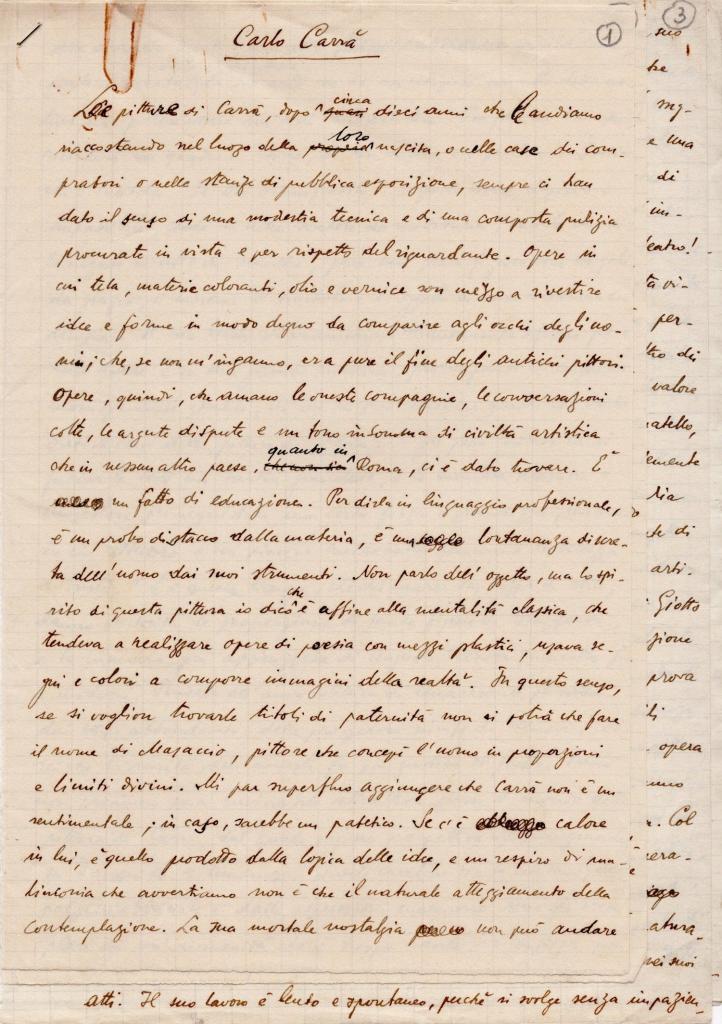 Carlo Carrà
1
3
Le pitture di Carrà, dopo circa dieci anni che le andiamo
riaccostando nel luogo della loro nascita, o nelle case dei com-
pratori o nelle stanze di pubblica esposizione, sempre ci han
dato il senso di una modestia tecnica e di una composta pulizia
procurate in vista e per rispetto del riguardante. Opere in
cui tela, materie coloranti, olio e vernice son mezzo a rivestire
idee e forme in modo degno da comparire agli occhi degli uo-
mini; che, se non m'inganno, era pure il fine degli antichi pittori.
Opere, quindi, che amano le oneste compagnie, le conversazioni
colte, le argute dispute e un tono insomma di civiltà artistica
che in nessun altro paese, quanto in Roma, ci è dato trovare. È
un fatto di educazione. Per dirla in linguaggio professionale,
è un probo distacco dalla materia, è una lontananza discre-
ta dell'uomo dai suoi strumenti. Non parlo dell'oggetto, ma lo spi-
rito di questa pittura io dico che è affine alla mentalità classica, che
tendeva a realizzare opere di poesia con mezzi plastici, usava se-
gni e colori a comporre immagini della realtà. In questo senso,
se si voglion trovarle titoli di paternità non si potrà che fare
il nome di Masaccio, pittore che concepì l'uomo in proporzioni
e limiti divini. Mi par superfluo aggiungere che Carrà non è un
sentimentale; in caso, sarebbe un patetico. Se c'è calore
in lui, è quello prodotto dalla logica delle idee, e un respiro di ma-
linconia che avvertiamo non è che il naturale atteggiamento della
contemplazione. La sua mortale nostalgia non può andare
suo
tre
e una
di
im-
eatro!
tà vi-
per-
tto di
valore
atello,
emente
lia
te di
arti-
Giotto
zione
prova
li
opera
uno
. Col
era-
atura-
nei suoi
atti. Il suo lavoro è lento e spontaneo, perchè si svolge senza impazien-